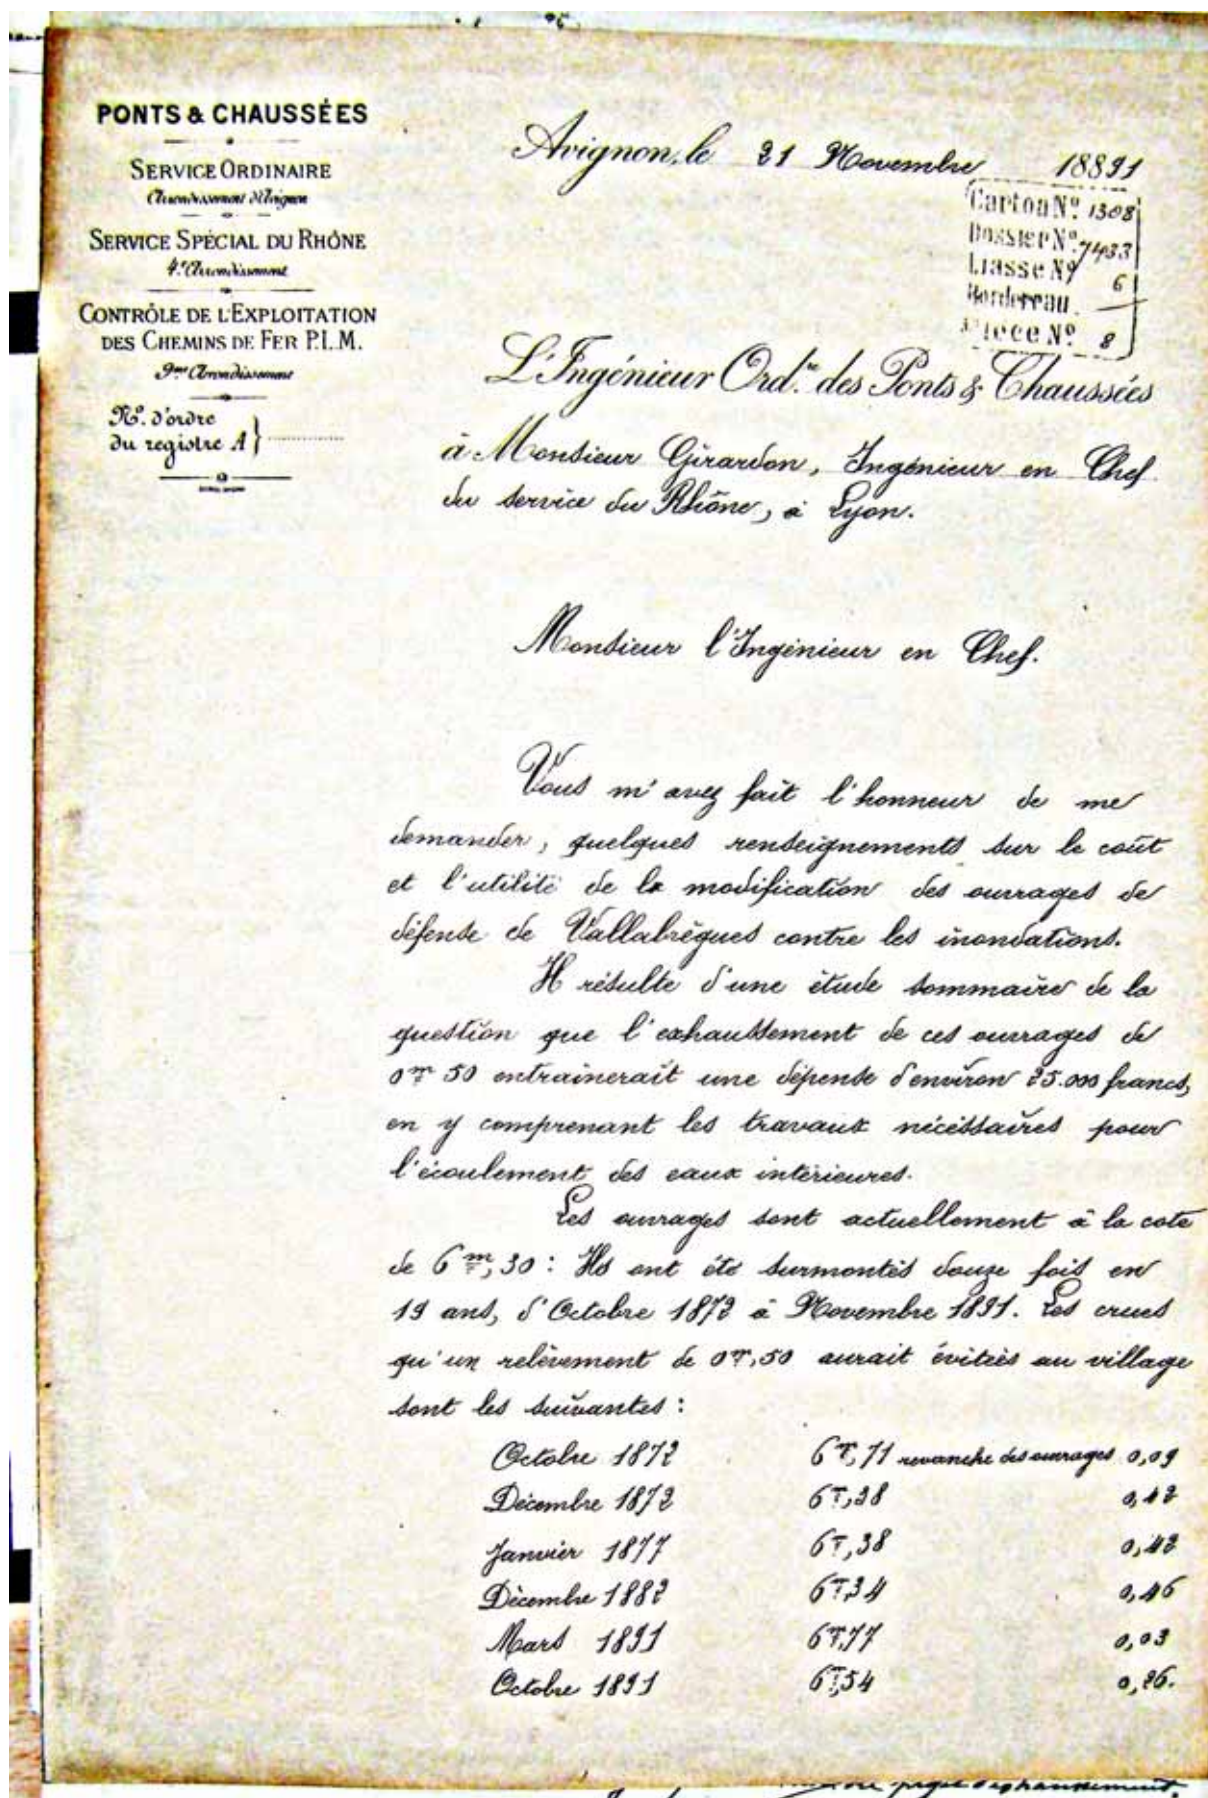 PONTS & CHAUSSÉES
SERVICE ORDINAIRE
Arrondissement d'Avignon
SERVICE SPÉCIAL DU RHÔNE
4e Arrondissement
CONTRÔLE DE L'EXPLOITATION
DES CHEMINS DE FER P.L.M.
9me Arrondissement
No. d'ordre
du registre A
Avignon, le 21 Novembre 18891
Carton No. 1308
Dossier No. 7433
Liasse No 6
Bordereau. —
Pièce No. 8
L'Ingénieur Ord.re des Ponts & Chaussées
à Monsieur Girardon, Ingénieur en Chef
du service du Rhône, à Lyon.
Monsieur l'Ingénieur en Chef.
Vous m'avez fait l'honneur de me
demander, quelques renseignements sur le coût
et l'utilité de la modification des ouvrages de
défense de Vallabrègues contre les inondations.
Il résulte d'une étude sommaire de la
question que l'exhaussement de ces ouvrages de
0m 50 entrainerait une dépense d'environ 25.000 francs,
en y comprenant les travaux nécéssaires pour
l'écoulement des eaux intérieures.
Les ouvrages sont actuellement à la cote
de 6m,30 : Ils ont été surmontés douze fois en
19 ans, d'Octobre 1872 à Novembre 1891. Les crues
qu'un relèvement de 0m,50 aurait évitées au village
sont les suivantes :
Octobre 1872 6m,71 revanche des ouvrages 0,09
Décembre 1872 6m,38 0,42
Janvier 1877 6m,38 0,42
Décembre 1882 6m,34 0,46
Mars 1891 6m,77 0,03
Octobre 1891 6m,54 0,26.